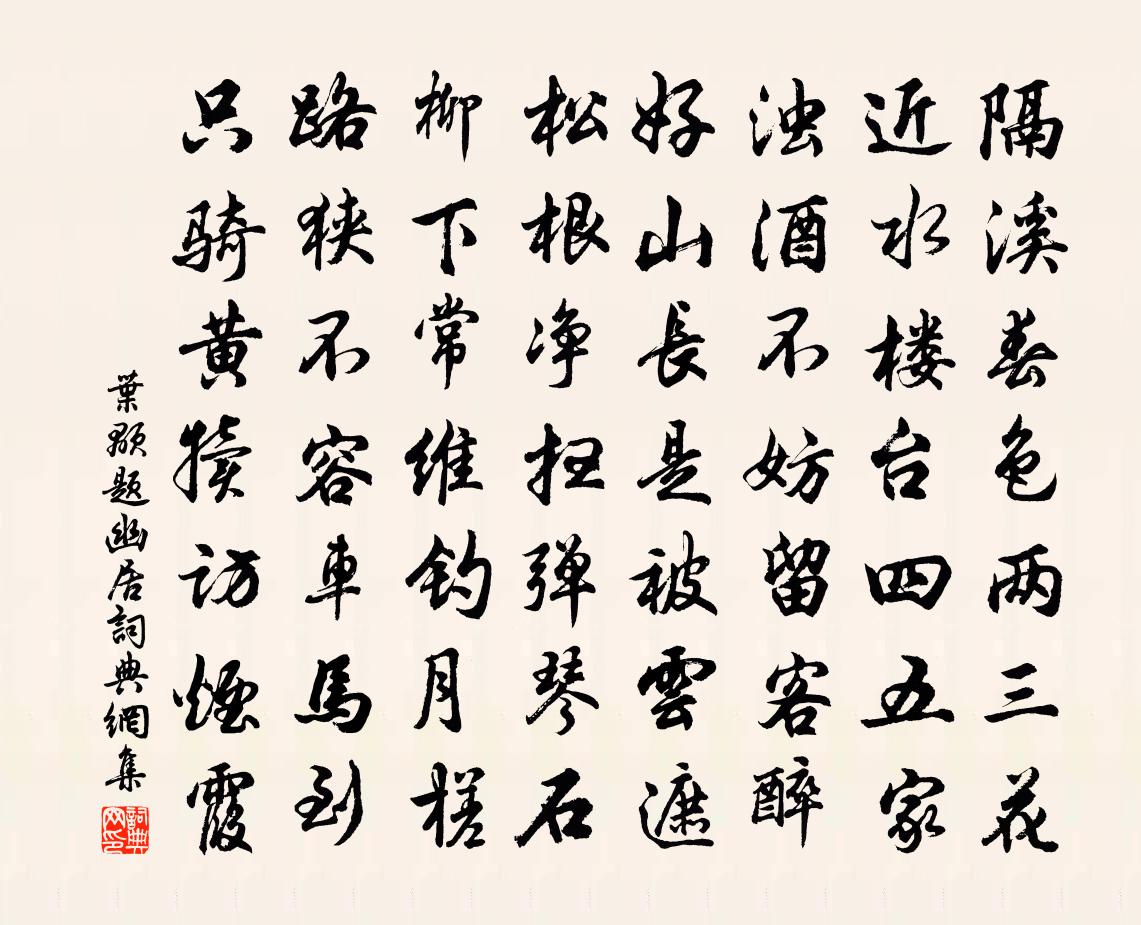 隔溪春色两三花
近水楼台四五家
浊酒不妨留客醉
好山長是被雲遮
松根净扫弹琴石
柳下常维钓月槎
路狭不容車馬到
只骑黄犊访煙霞
葉顒題幽居詞典網集
詞典网印